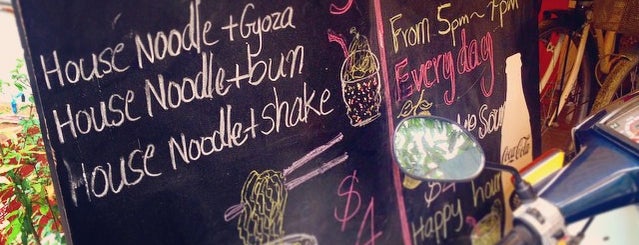 House Noodle + Gyoza
House Noodle + bun
House Noodle + shake
$4
From 5pm ~ 7pm
Everyday
Coca-Cola
Happy hour